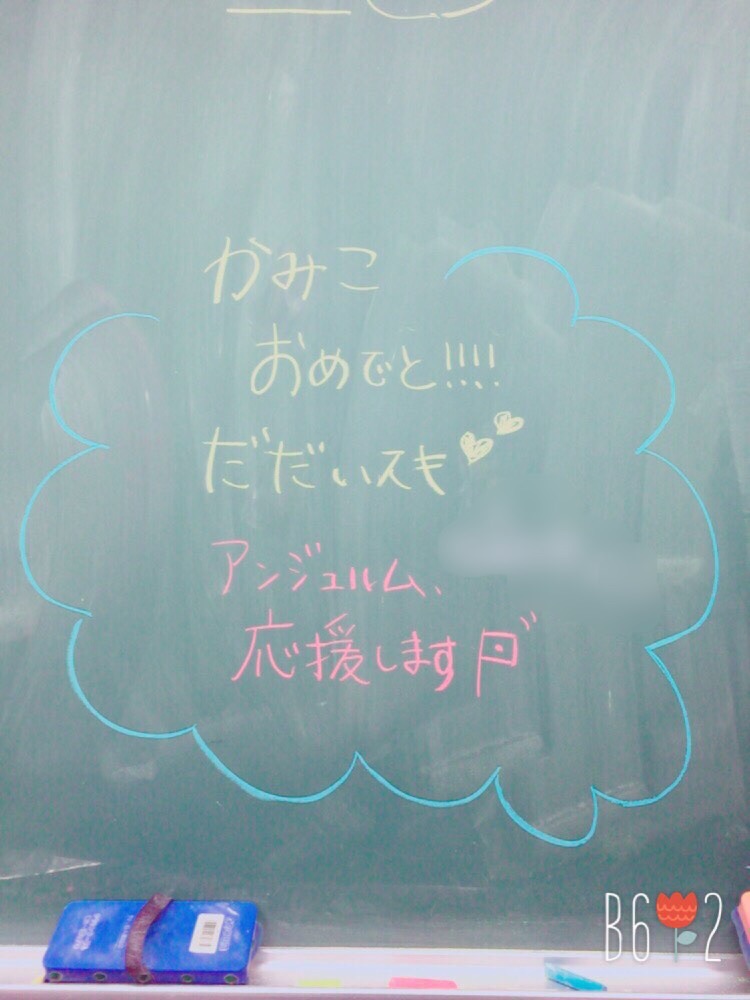 かみこ
おめでと!!!!
だだいスキ
アンジュルム、
応援します
B612